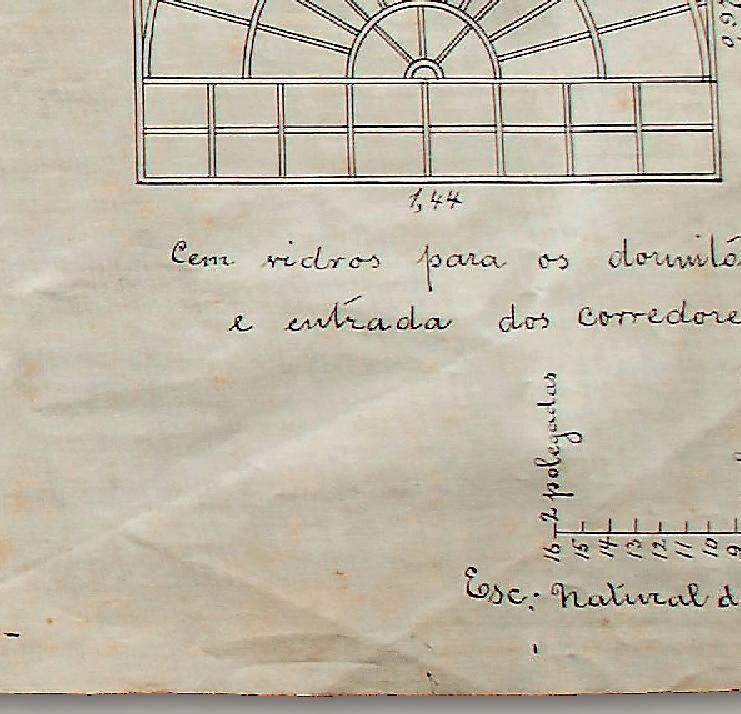 0,97
1,44
Cem vidros para os dormitó
e entrada dos corredore
2 polegadas
16 15 14 13 12 11 10 9
Esc: Natural d